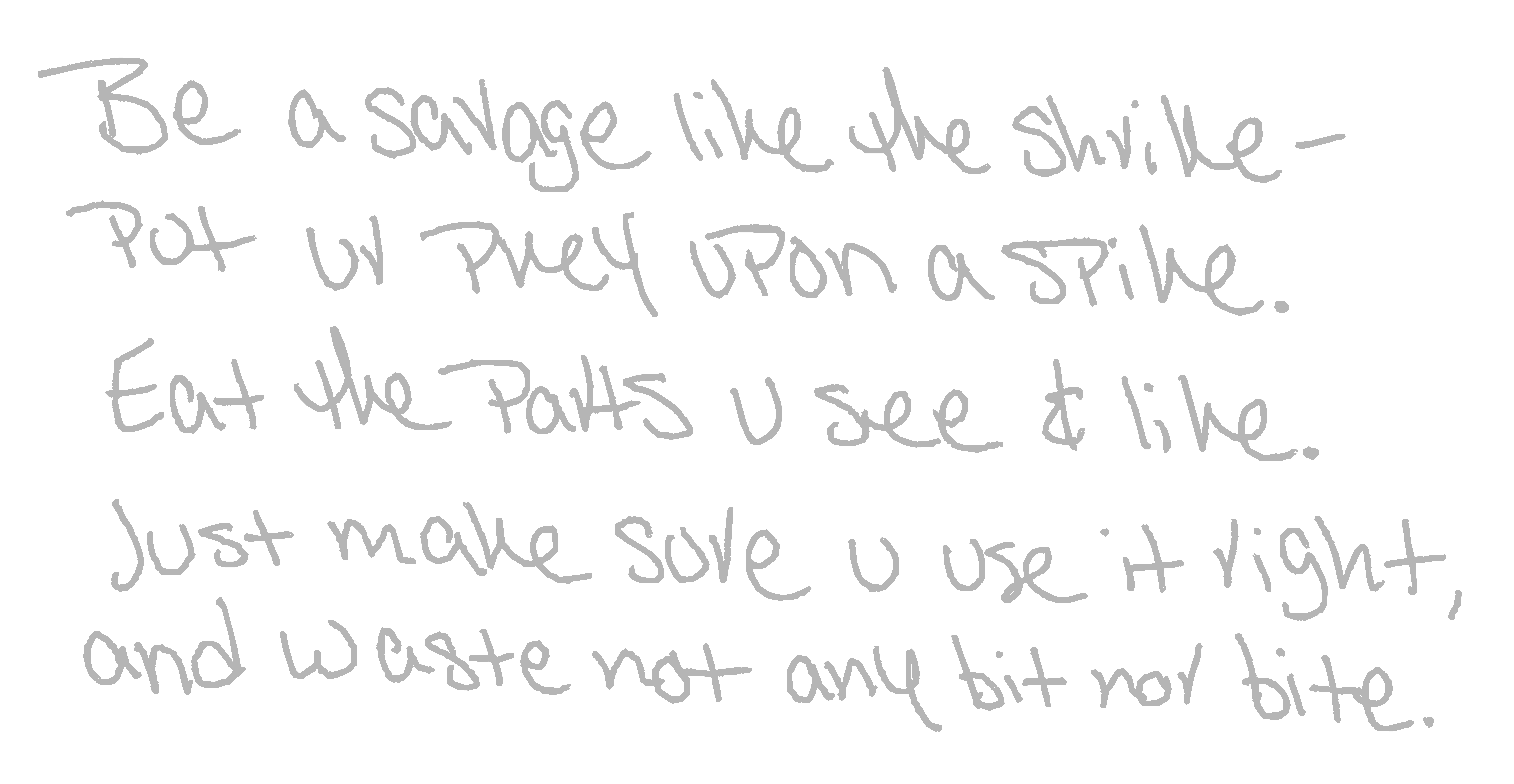 Be a savage like the shrike-
Put ur prey upon a spike.
Eat the parts u see & like.
Just make sure u use it right,
and waste not any bit nor bite.